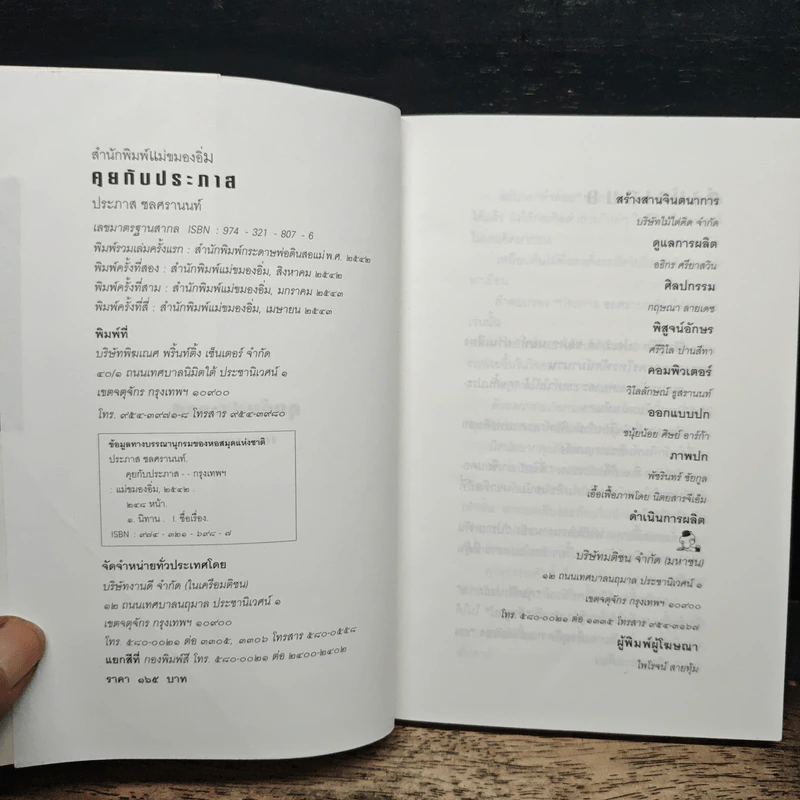 สำนักพิมพ์แม่ขมองอิ่ม
คุยกับประภาส
ประภาส ชลศรานนท์
เลขมาตรฐานสากล ISBN : 974 - 321 - 807 - 6
พิมพ์รวมเล่มครั้งแรก : สำนักพิมพ์กระดาษพ่อดินสอแม่ พ.ศ. ๒๕๔๒
พิมพ์ครั้งที่สอง : สำนักพิมพ์แม่ขมองอิ่ม, สิงหาคม ๒๕๔๒
พิมพ์ครั้งที่สาม : สำนักพิมพ์แม่ขมองอิ่ม, มกราคม ๒๕๔๓
พิมพ์ครั้งที่สี่ : สำนักพิมพ์แม่ขมองอิ่ม, เมษายน ๒๕๔๓
พิมพ์ที่
บริษัทพิฆเณศ พริ้นท์ติ้ง เซ็นเตอร์ จำกัด
๔๐/๑ ถนนเทศบาลนิมิตใต้ ประชานิเวศน์ ๑
เขตจตุจักร กรุงเทพฯ ๑๐๙๐๐
โทร. ๙๕๔-๓๙๗๑-๘ โทรสาร ๙๕๔-๓๙๘๐
ข้อมูลทางบรรณานุกรมของหอสมุดแห่งชาติ
ประภาส ชลศรานนท์.
คุยกับประภาส - - กรุงเทพฯ
: แม่ขมองอิ่ม, ๒๕๔๒ .
๒๔๘ หน้า
๑. นิทาน . I. ชื่อเรื่อง.
ISBN : ๙๗๔ - ๓๒๑ - ๖๙๘ - ๗
จัดจำหน่ายทั่วประเทศโดย
บริษัทงานดี จำกัด (ในเครือมติชน)
๑๒ ถนนเทศบาลนฤมาล ประชานิเวศน์ ๑
เขตจตุจักร กรุงเทพฯ ๑๐๙๐๐
โทร. ๕๘๐-๐๐๒๑ ต่อ ๓๓๐๕, ๓๓๐๖ โทรสาร ๕๘๐-๐๕๕๘
แยกสีที่ กองพิมพ์สี โทร. ๕๘๐-๐๐๒๑ ต่อ ๒๔๐๐-๒๔๐๒
ราคา ๑๖๕ บาท
สร้างสานจินตนาการ
บริษัทไม้ไต่คิด จำกัด
ดูแลการผลิต
อธิกร ศรียาสวิน
ศิลปกรรม
กฤษณา ลายเดช
พิสูจน์อักษร
ศรีวิไล ปานสีทา
คอมพิวเตอร์
วิไลลักษณ์ ธูสรานนท์
ออกแบบปก
ชนุ้ยน้อย ศิษย์ อาร์ก้า
ภาพปก
พัชรินทร์ ชัยกูล
เอื้อเฟื้อภาพโดย นิตยสารจีเอ็ม
ดำเนินการผลิต
บริษัทมติชน จำกัด (มหาชน)
๑๒ ถนนเทศบาลนฤมาล ประชานิเวศน์ ๑
เขตจตุจักร กรุงเทพฯ ๑๐๙๐๐
โทร. ๕๘๐-๐๐๒๑ ต่อ ๑๓๓๕ โทรสาร ๙๕๔-๓๑๖๗
ผู้พิมพ์ผู้โฆษณา
ไพโรจน์ สายทุ้ม